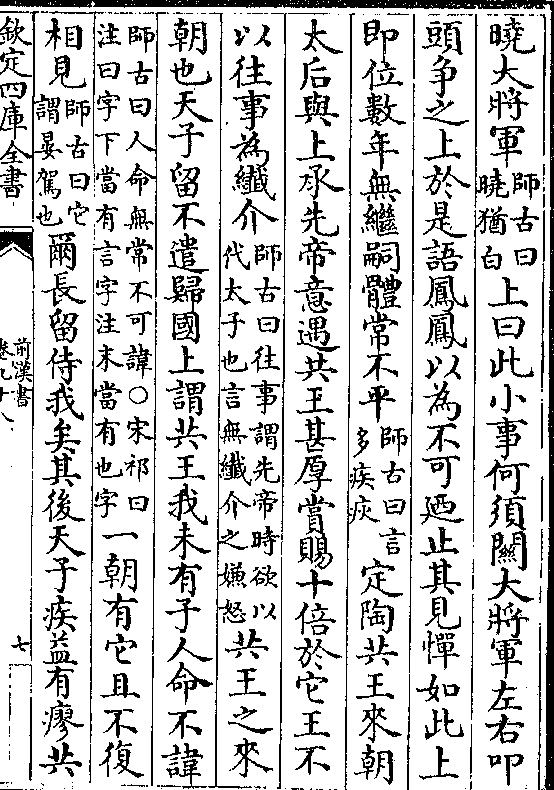 曉大將軍師古曰曉猶白上曰此小事何須關大將軍左右叩
頭争之上於是語鳳鳳以為不可廼止其見憚如此上
即位數年無繼嗣體常不平師古曰言多疾疢定陶共王來朝
太后與上承先帝意遇共王甚厚賞賜十倍於它王不
以往事為纎介師古曰往事謂先帝時欲以代太子也言無纎介之嫌怒共王之來
朝也天子留不遣歸國上謂共王我未有子人命不諱
師古曰人命無常不可諱○宋祁曰注曰字下當有言字注末當有也字一朝有它且不復
相見師古曰它謂晏駕也爾長留侍我矣其後天子疾益有瘳共
欽定四庫全書
前漢書
卷九十八
七